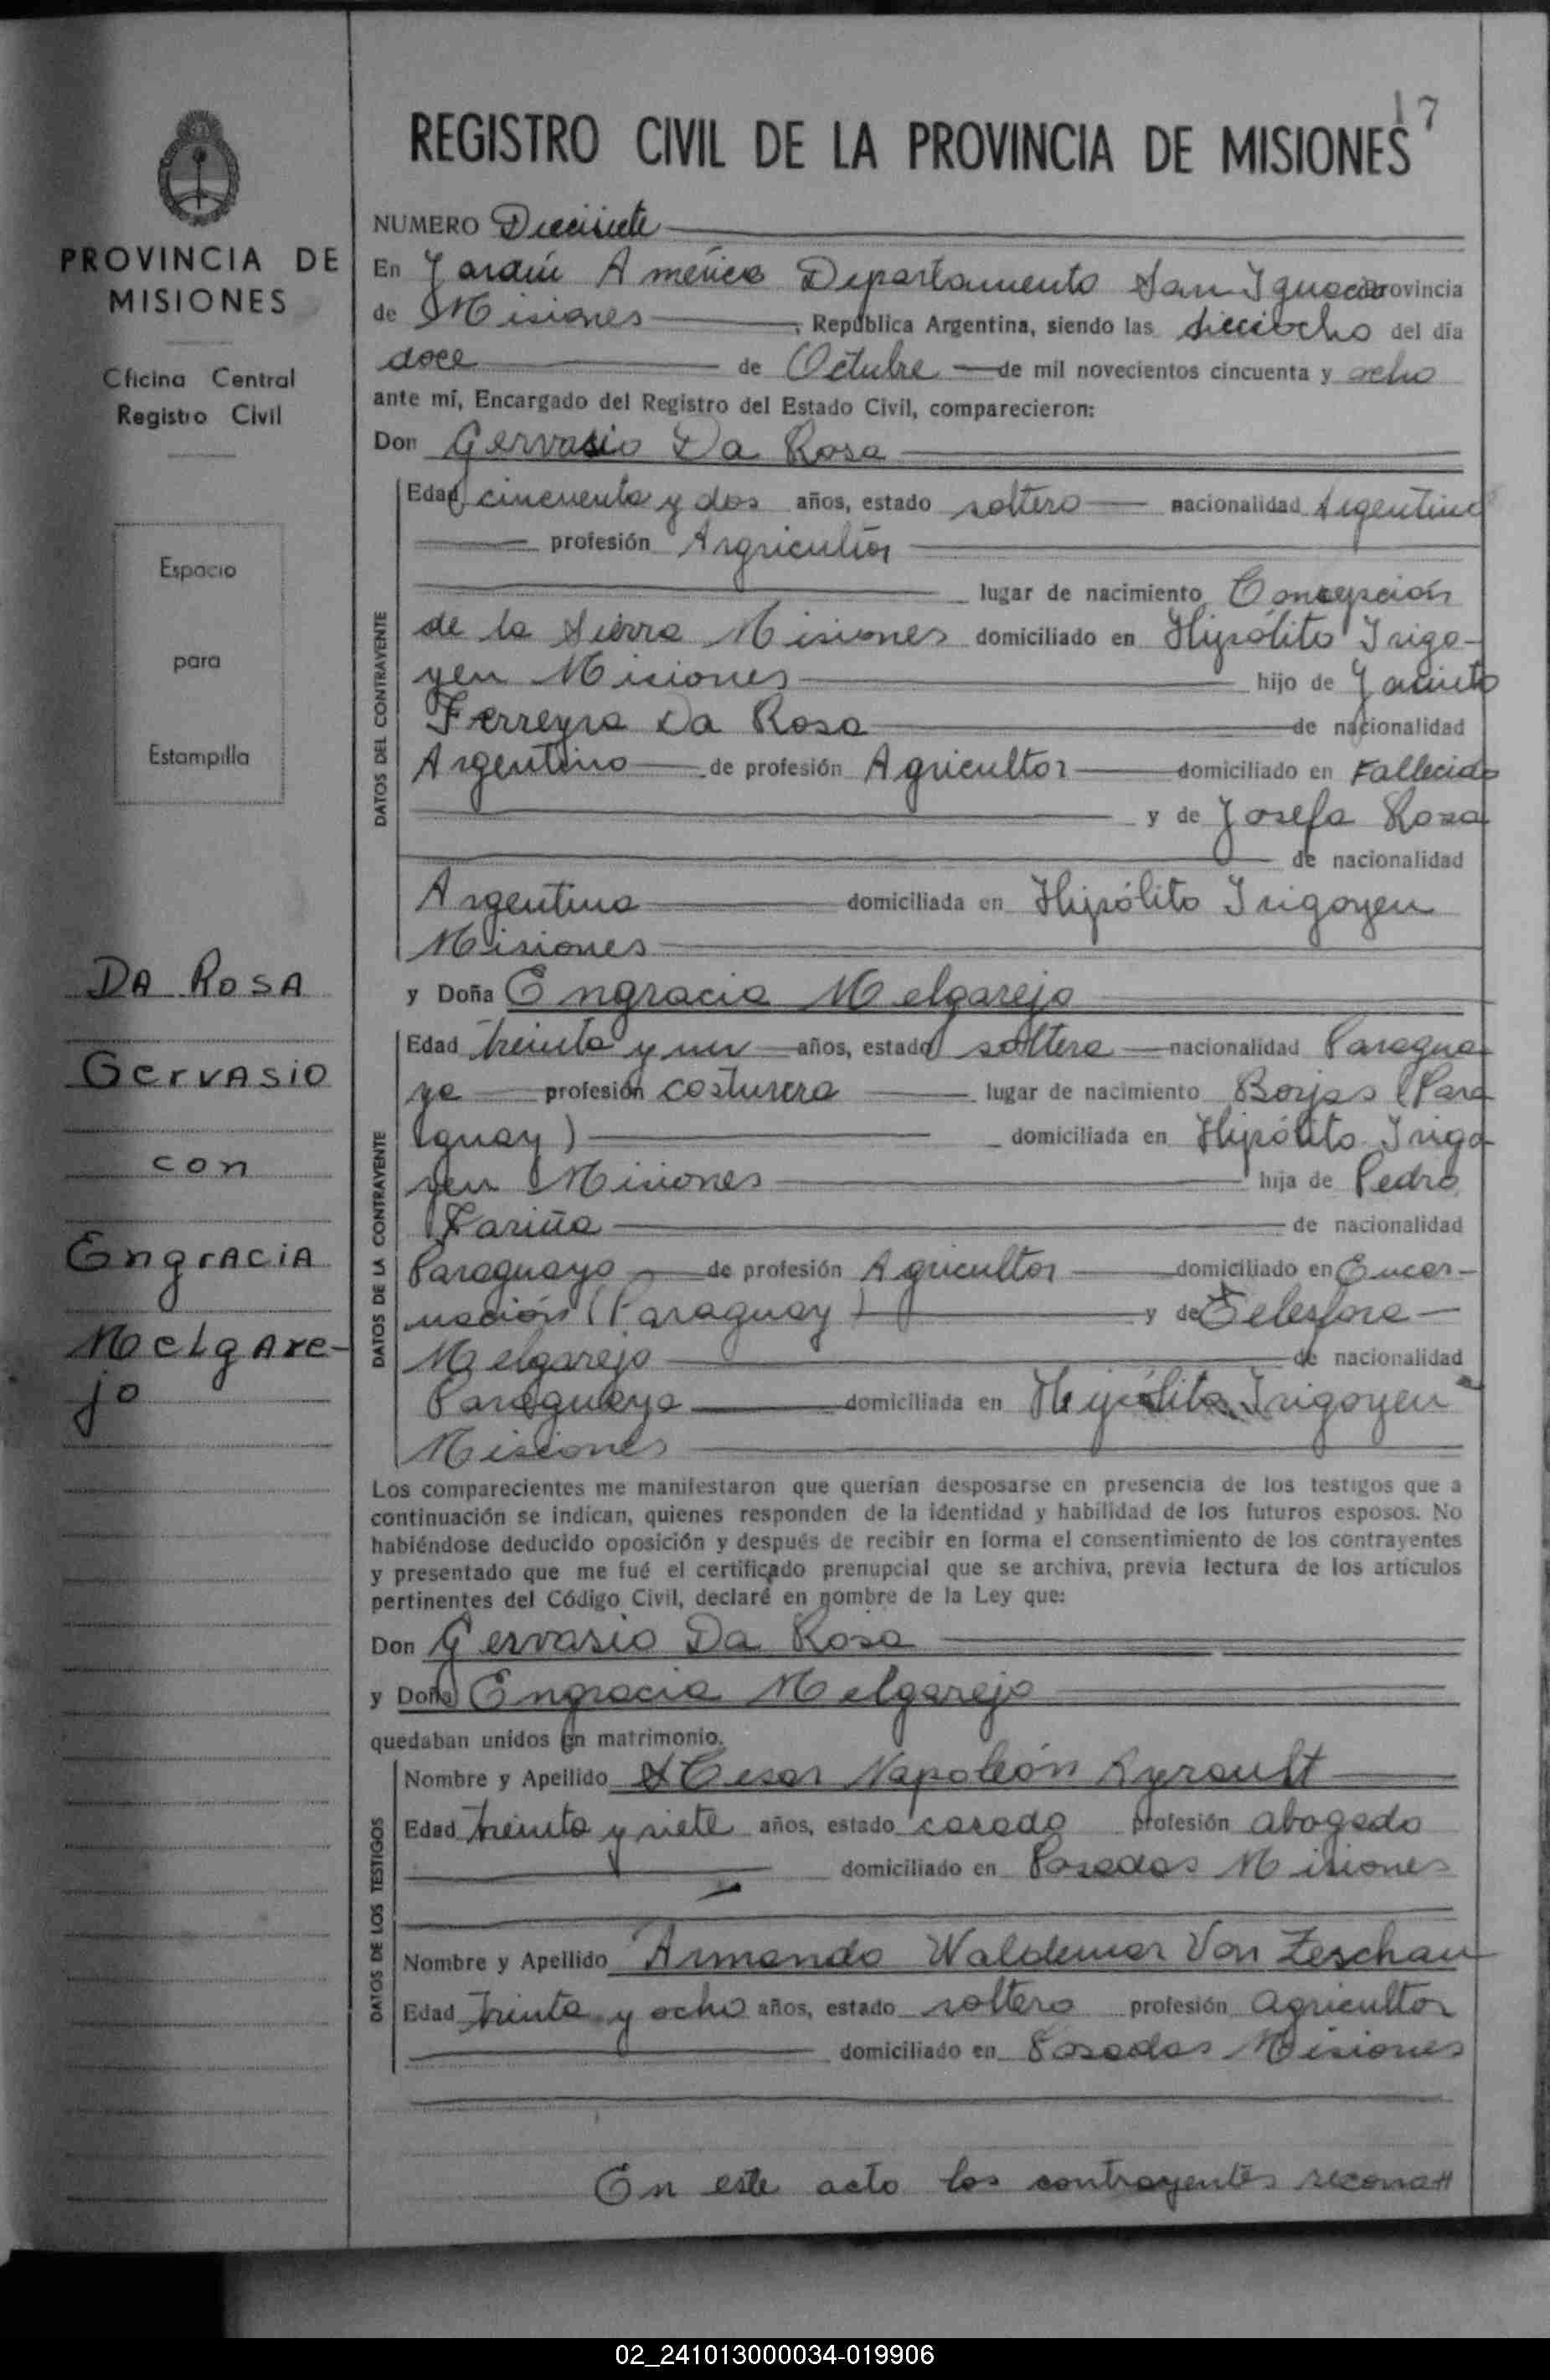 17
REGISTRO CIVIL DE LA PROVINCIA DE MISIONES
PROVINCIA DE
MISIONES
Oficina Central
Registro Civil
Espacio
para
Estampilla
DA ROSA
GERVASIO
con
EngrACIA
MelgAre-
jo
NUMERO Diecisiete
En Jardín América Departamento San Ignacio Provincia
de Misiones, República Argentina, siendo las dieciocho del día
doce de Octubre de mil novecientos cincuenta y ocho
ante mí, Encargado del Registro del Estado Civil, comparecieron:
Don Gervasio Da Rosa
DATOS DEL CONTRAYENTE
Edad cincuenta y dos años, estado soltero nacionalidad Argentino
profesión Argricultor
lugar de nacimiento Concepción
de la Sierra Misiones domiciliado en Hipólito Irigo-
yen Misiones hijo de Jacinto
Ferreyra Da Rosa de nacionalidad
Argentino de profesión Agricultor domiciliado en Fallecido
y de Josefa Rosa
de nacionalidad
Argentina domiciliada en Hipólito Irigoyen
Misiones
y Doña Engracia Melgarejo
DATOS DE LA CONTRAYENTE
Edad treinta y un años, estado soltera nacionalidad Paragua-
ya profesión costurera lugar de nacimiento Borjas (Para
guay) domiciliada en Hipólito Irigo-
yen Misiones hija de Pedro
Fariña de nacionalidad
Paraguayo de profesión Agricultor domiciliado en Encar-
nación (Paraguay) y de Telesfora
Melgarejo de nacionalidad
Paraguaya domiciliada en Hipólito Irigoyen
Misiones
Los comparecientes me manifestaron que querían desposarse en presencia de los testigos que a
continuación se indican, quienes responden de la identidad y habilidad de los futuros esposos. No
habiéndose deducido oposición y después de recibir en forma el consentimiento de los contrayentes
y presentado que me fué el certificado prenupcial que se archiva, previa lectura de los artículos
pertinentes del Código Civil, declaré en nombre de la Ley que:
Don Gervasio Da Rosa
y Doña Engracia Melgarejo
quedaban unidos en matrimonio.
DATOS DE LOS TESTIGOS
Nombre y Apellido Cesar Napoleón Ayrault
Edad treinta y siete años, estado casado profesión abogado
domiciliado en Posadas Misiones
Nombre y Apellido Armando Waldemar Von Zeschau
Edad treinta y ocho años, estado soltero profesión agricultor
domiciliado en Posadas Misiones
En este acto los contrayentes recono#
02_241013000034-019906